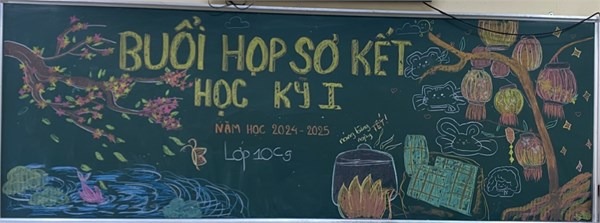 BUỔI HỌP SƠ KẾT
HỌC KỲ I
NĂM HỌC 2024-2025
Lớp 10C9